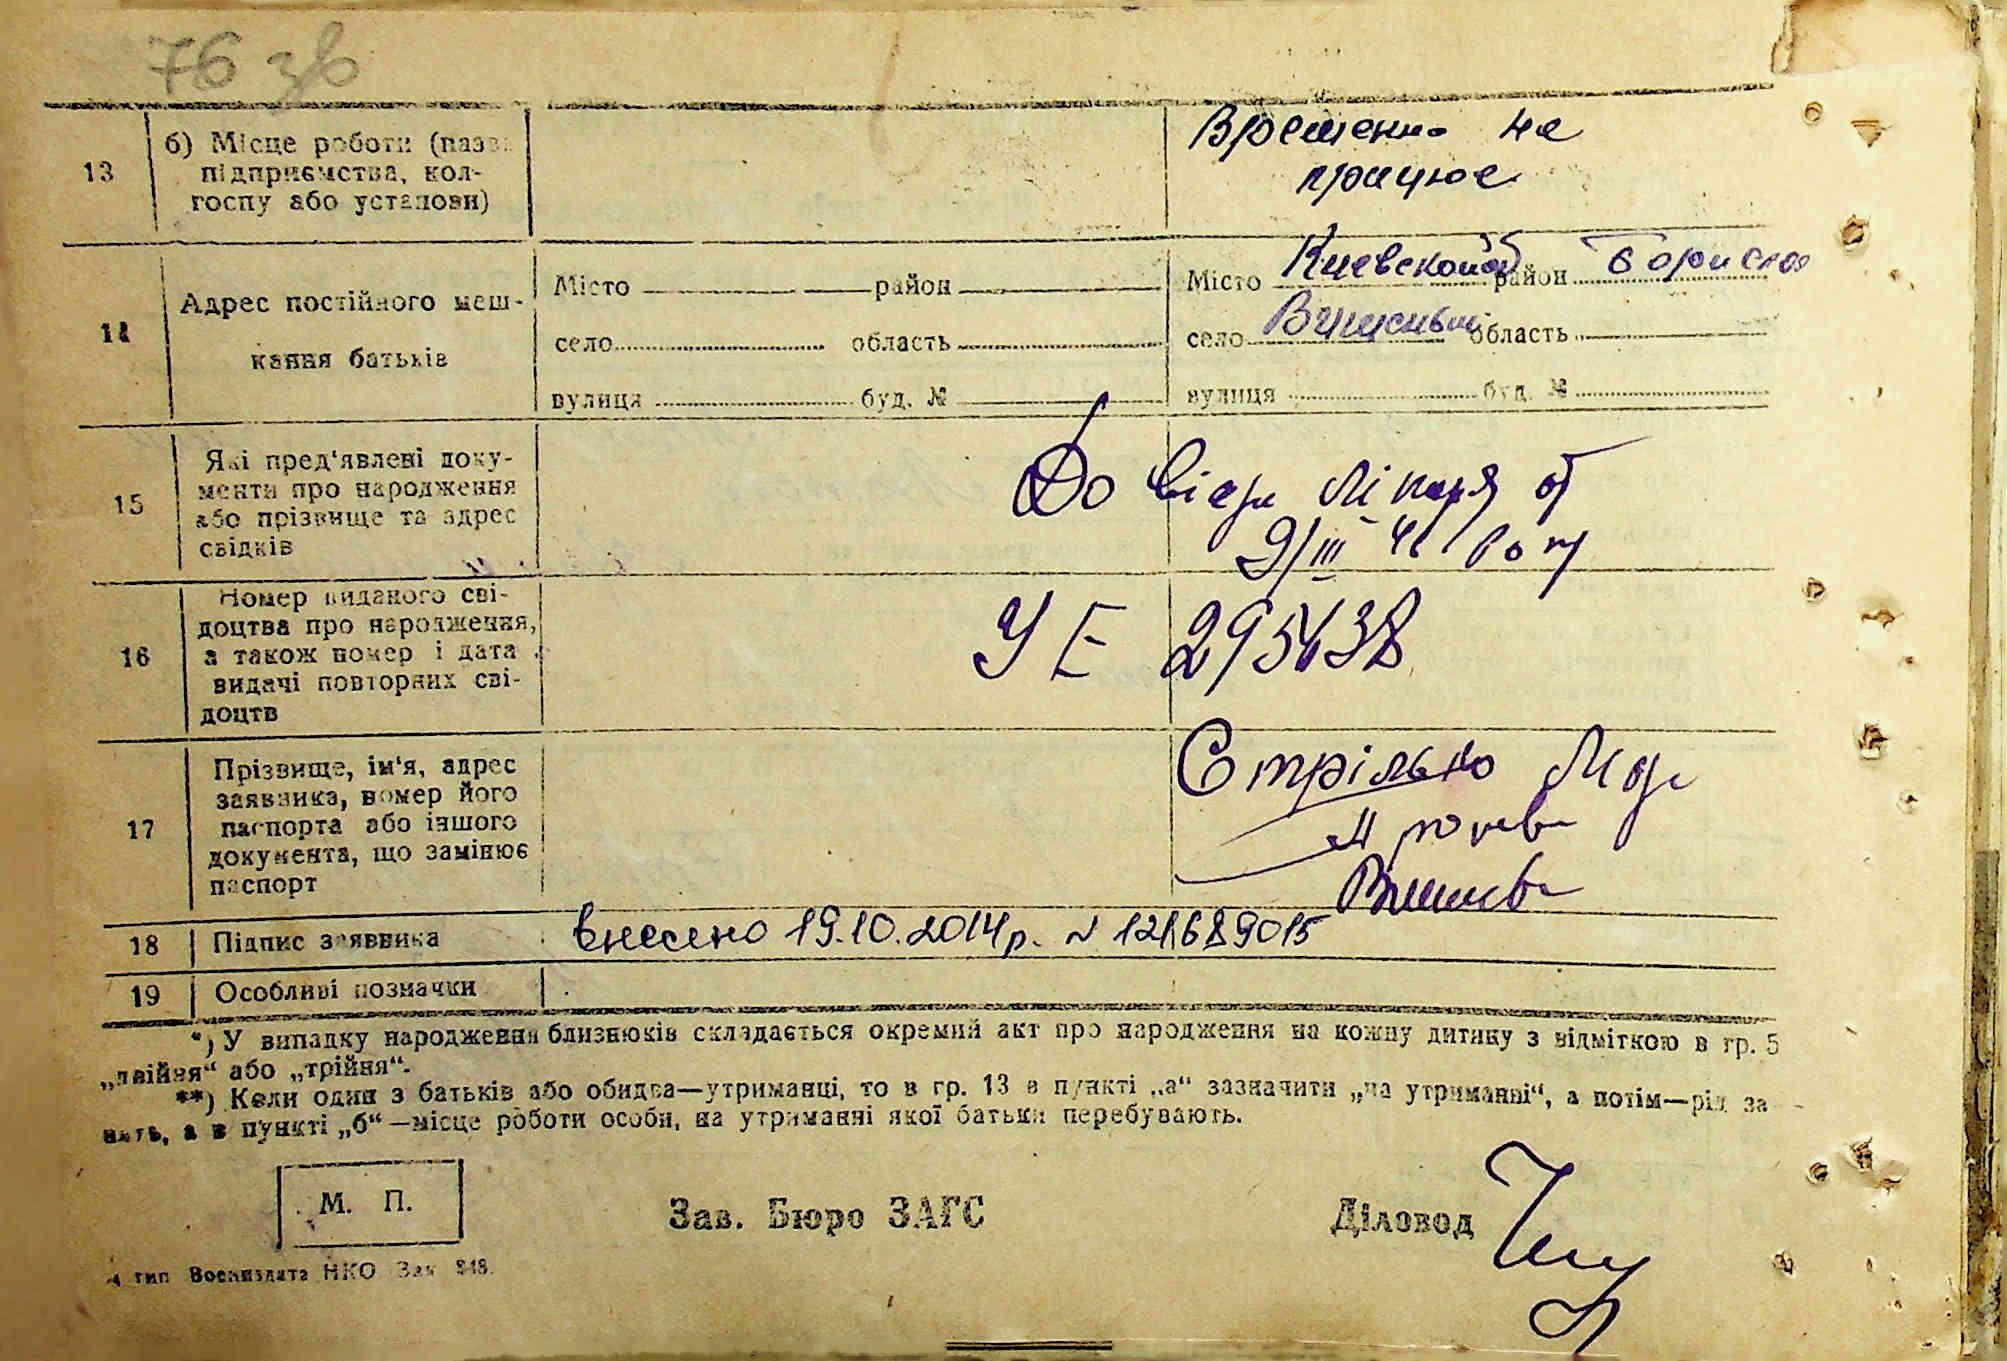 76 зв
13
б) Місце роботи (назва
підприємства, кол-
госпу або установи)
Временно не
працює
14
Адрес постійного меш-
кання батьків
Місто район
село область
вулиця буд. №
Місто Киевской об район Борисп
село область
вулиця буд. №
15
Які пред'явлені доку-
менти про народження
або прізвище та адрес
свідків
Лікаря от
9/III
16
Номер виданого сві-
доцтва про народження,
а також номер і дата
видачі повторних сві-
доцтв
УЕ 295438
17
Прізвище, ім'я, адрес
заявника, номер його
паспорта або іншого
документа, що замінює
паспорт
Стрілько
18
Підпис заявника
внесено 19.10.2014р. N 121689015
19
Особливі позначки
*) У випадку народження близнюків складається окремий акт про народження на кожну дитину з відміткою в гр. 5
„двійня“ або „трійня“.
**) Коли один з батьків або обидва—утриманці, то в гр. 13 в пункті „а“ зазначити „на утриманні“, а потім—рід за-
нять, а в пункті „б“—місце роботи особи, на утриманні якої батьки перебувають.
М. П.
Зав. Бюро ЗАГС
Діловод
тип Воениздата НКО Зак 348.